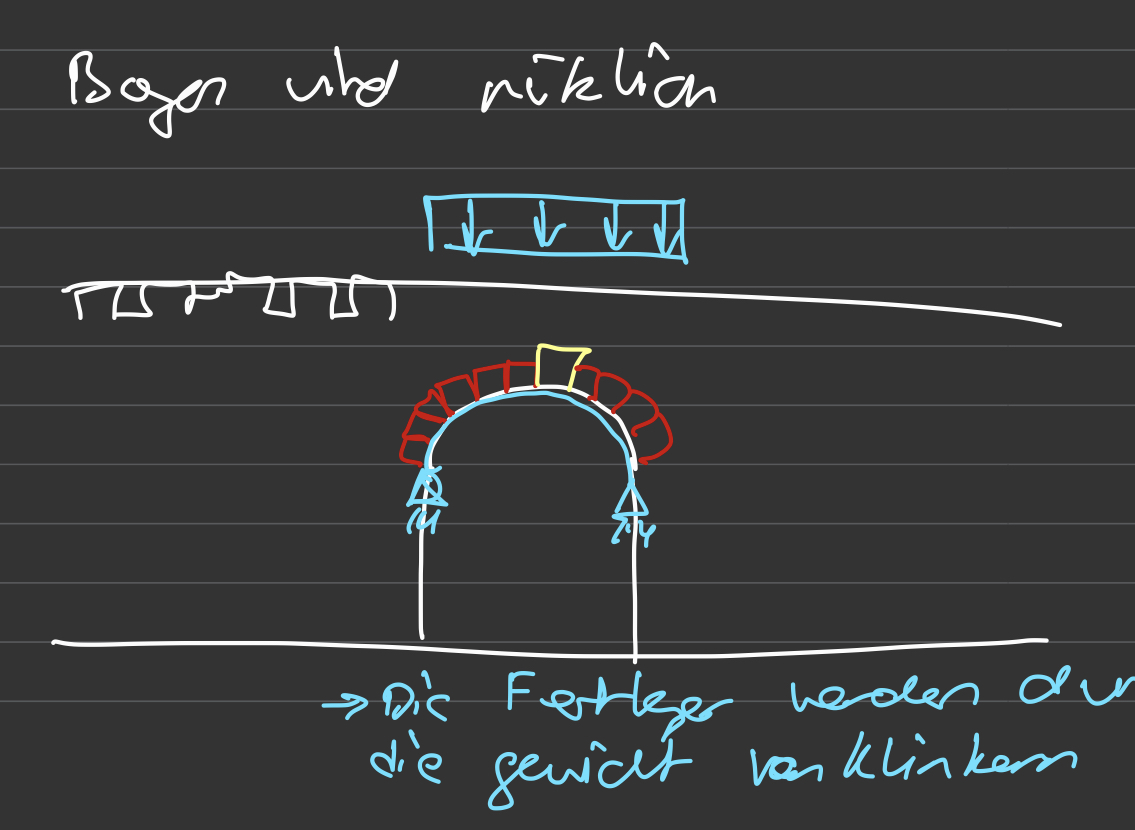 Bogen und
→ Die Festlager werden dur
die gewicht von Klinkern